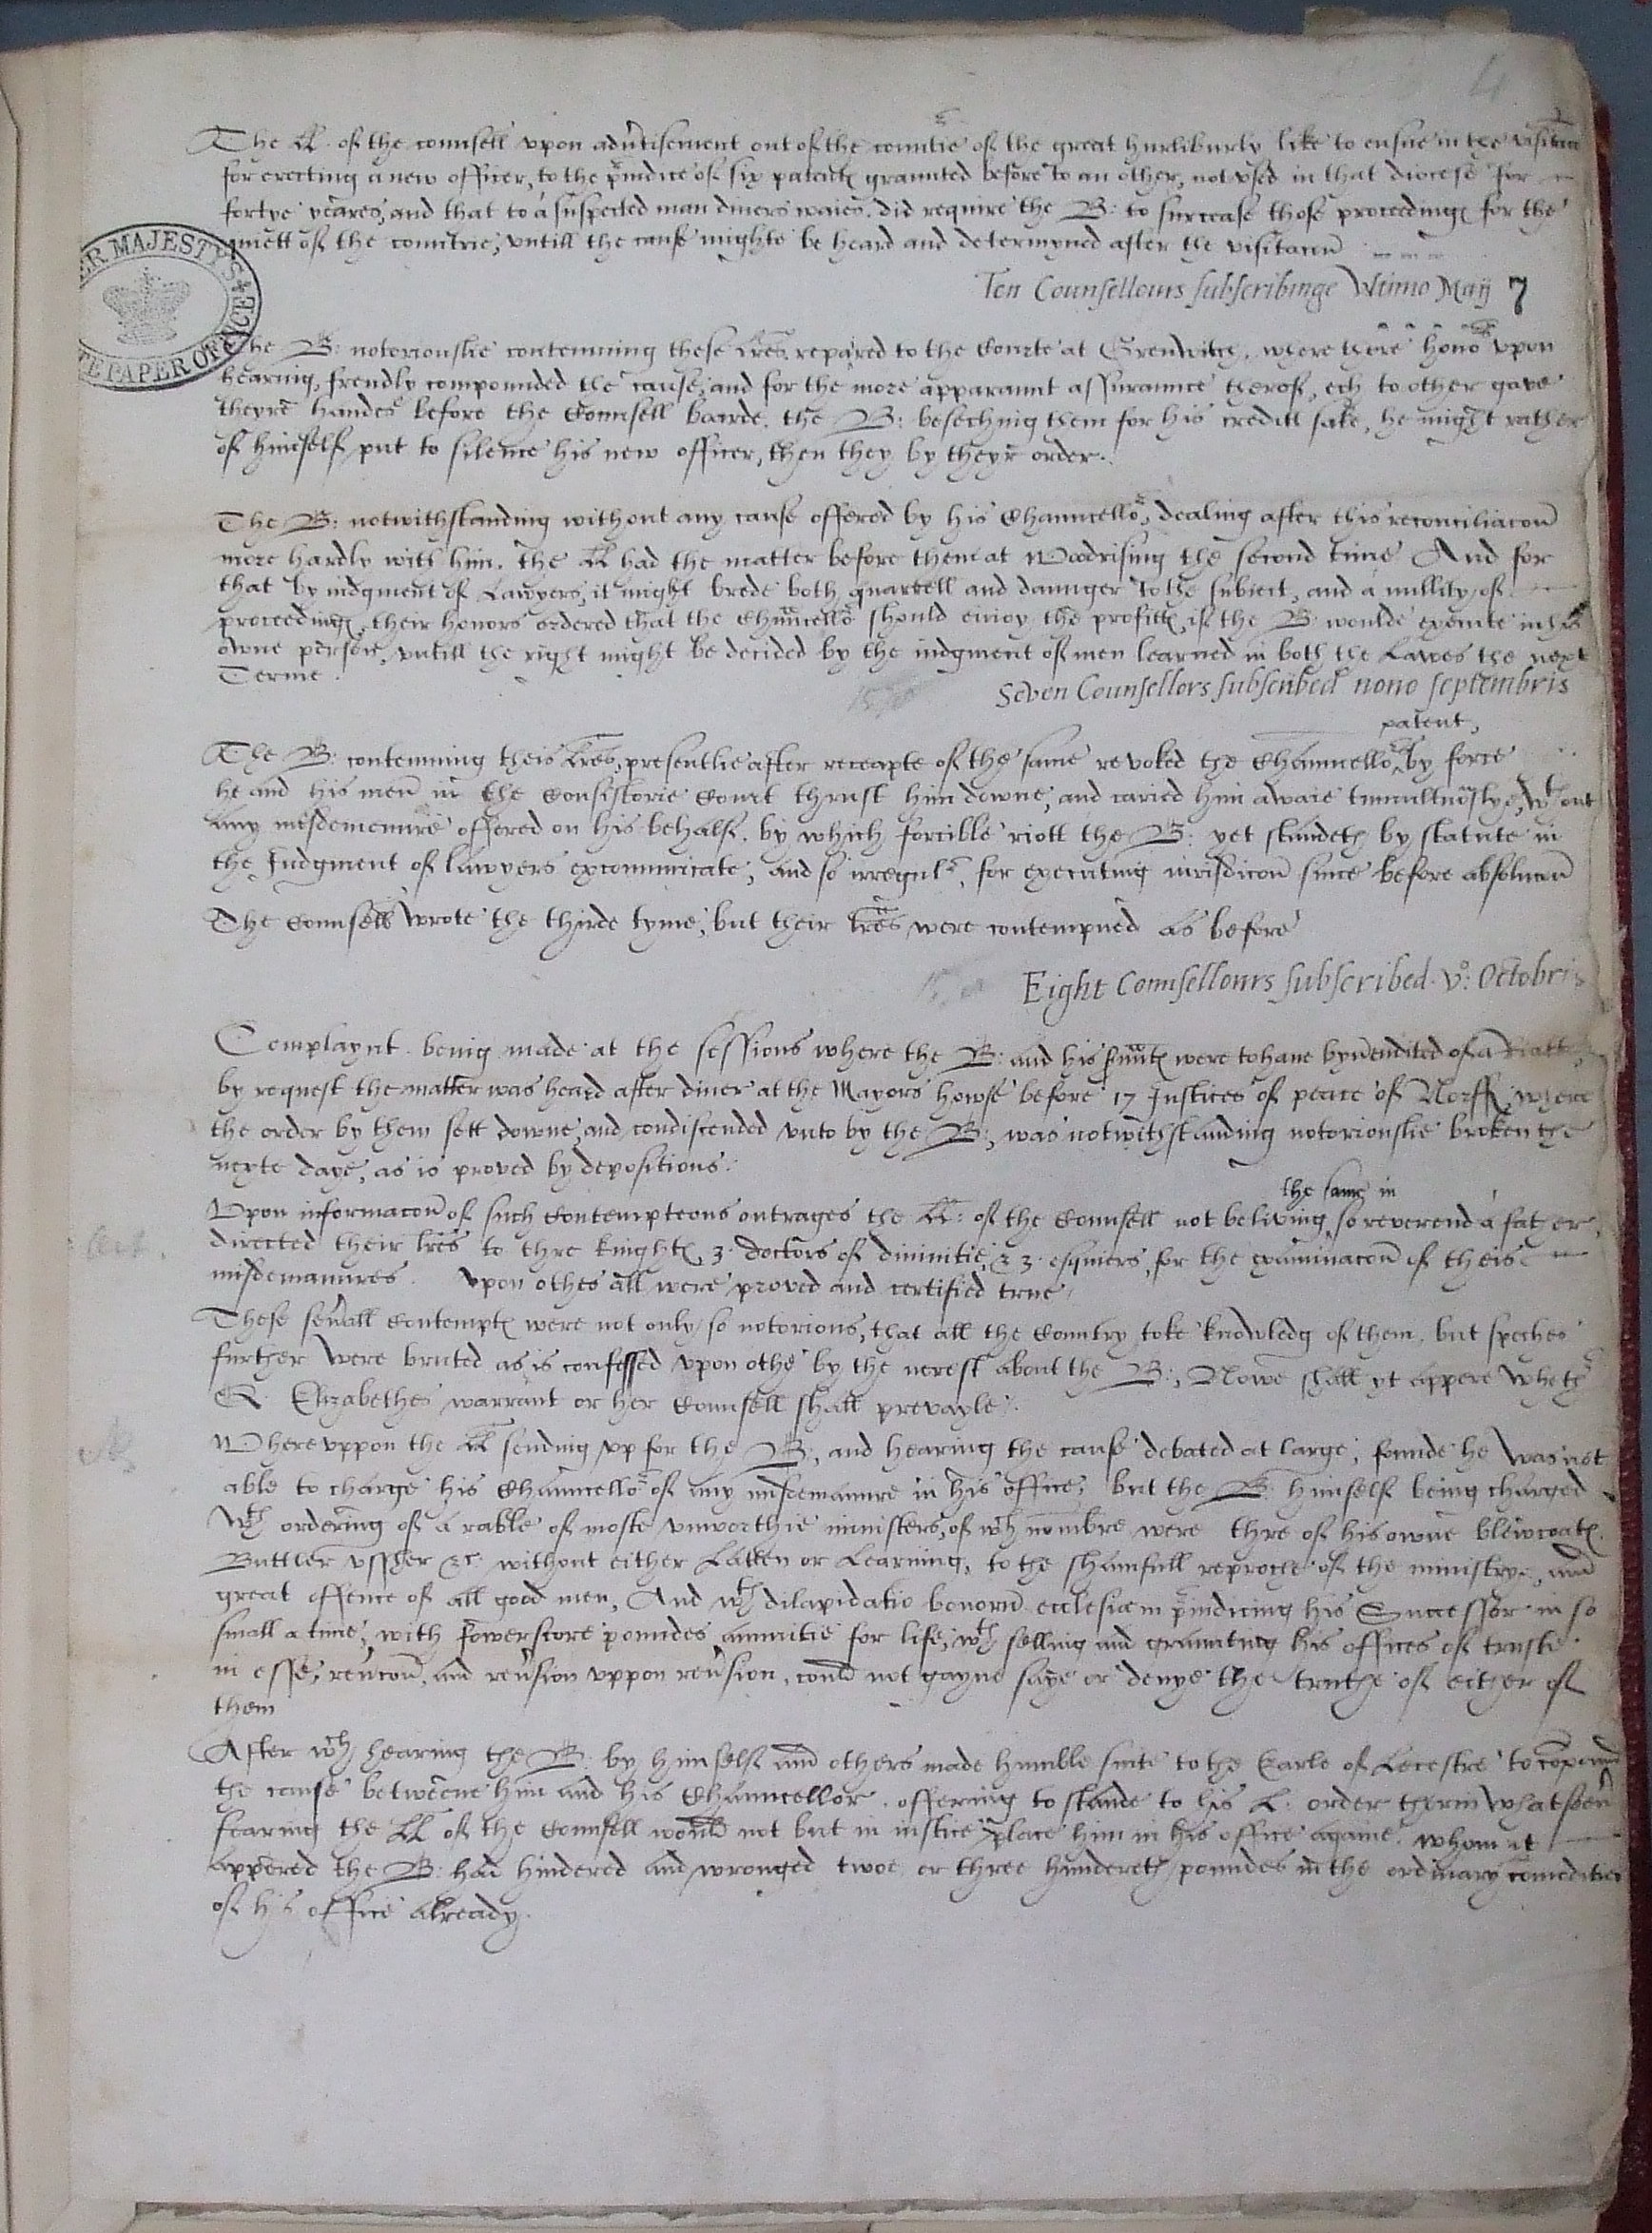 4
The LL. of the counsell vpon adu'tisement out of the countie of the great hurliburly like to ensue in the visitacon
for erecting a new officer, to the p'iudice of six patents graunted before to an other, not vsed in that diocese for
fortye yeares, and that to a suspected man diuers waies. did require the B: to surcease those proceedings for the
quiett of the countrie, vntill the cause mighte be heard and determyned after the visitacon
Ten Counsellours subscribinge Vltimo Maij 7
HER MAJESTY'S STATE PAPER OFFICE
The B: notoriouslie contemning these lres, repaired to the Courte at Grenwitch, where there hono:rs vpon
hearing, frendly compounded the cause, and for the more apparaunt assuraunce therof, ech to other gave
theyre handes before the Counsell boarde. the B: beseching them for his creditt sake, he might rather
of himself put to silence his new officer, then they by theyr order.
The B: notwithstanding without any cause offered by his Chauncello:r, dealing after this reconciliacon
more hardly with him. the LL had the matter before them at Woodrising the second time And for
that by iudgment of Lawyers, it might brede both quarrell and daunger to the subiect, and a nullity of
proceedings, their honors ordered that the Chauncello:r should enioy the profitts, if the B: woulde execute in his
owne person, vntill the right might be decided by the iudgment of men learned in both the Lawes the next
Terme.
Seven Counsellors subscribed nono septembris
The B: contemning theis lres, presentlie after receapte of the same revoked the Chauncello:rs patent, by force
he and his men in the Consistorie Court thrust him downe, and caried him awaie tumultuouslye, w:th out
any misdemenure offered on his behalf. by which forcible riott the B: yet standeth by statute in
the Judgment of lawyers excommunicate, and so irregul:r, for executing iurisdicon since before absolucon
The Counsell wrote the thirde tyme, but their lres were contempned as before
Eight Counsellours subscribed. v:o: Octobris
Complaynt being made at the sessions where the B: and his s'unts were to haue byn endited of a Riatt,
by request the matter was heard after diner at the Mayors howse before 17 Justices of peace of Norff, where
the order by them sett downe, and condiscended vnto by the B:, was notwithstanding notoriouslie broken the
nexte daye, as is proved by depositions.
Vpon informacon of such Contempteous outrages the LL: of the Counsell not beliving the same in so reverend a father,
directed their lres to thre knights, 3. doctors of diuinitie, & 3. esquiers, for the examinacon of theise
misdemanures. vpon othes all were proved and certified true,
These seu'all Contempts were not only so notorious, that all the Country toke knowledg of them, but speches
further were bruted as is confessed vpon othe by the nerest about the B:, Nowe shall yt appere wheth'
Q. Elizabethes warrant or her Counsell shall prevayle.
Wherevppon the LL sending vp for the B:, and hearing the cause debated at large, founde he was not
able to charge his Chauncello:r of any misdemanure in his office; but the B: himself being charged
w:th ordering of a rable of moste vnworthie ministers, of w:ch nombre were thre of his owne blewcoats.
Buttler vssher &c without either Latten or Learning, to the shamfull reproche of the ministrye, and
great offence of all good men, And w:th dilapidatio bonorum ecclesiæ in p'iudicing his Successor in so
small a time, with fowerscore poundes annuitie for life, w:th selling and graunting his offices of truste
in esse, reu'con, and reu'sion vppon reu'sion, could not gayne saye or denye the truthe of either of
them
After w:ch hearing the B: by himself and others made humble sute to the Earle of Lecestre to compound
the cause betweene him and his Chauncellor. offering to stande to his L: order therin whatsoeu'
fearing the LL of the Counsell would not but in iustice place him in his office againe. whom it
appered the B: had hindered and wronged twoe or three hundereth poundes in the ordinary comodities
of his office already.